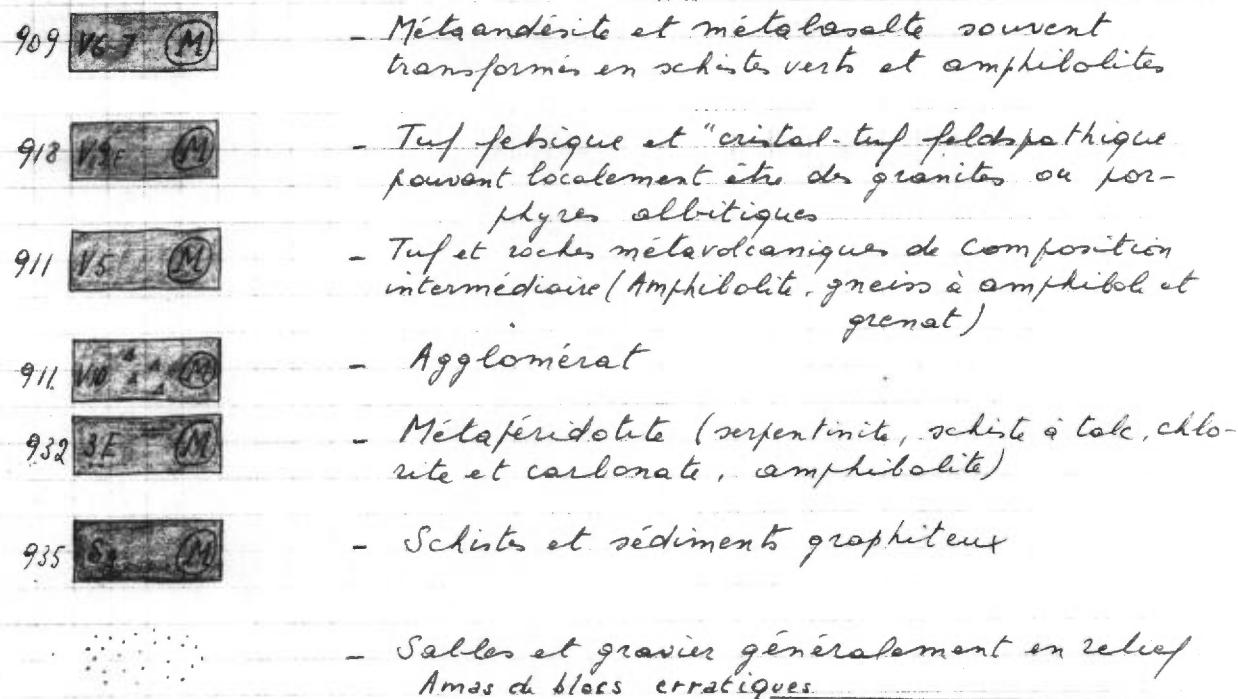 909 V6-7 (M) - Métaandésite et métabasalte souvent
transformés en schistes verts et amphibolites
918 (M) - Tuf felsique et "cristal-tuf feldspathique
pouvant localement être des granites ou por-
phyres albitiques
911 V5 (M) - Tuf et roches métavolcaniques de composition
intermédiaire (Amphibolite, gneiss à amphibole et
grenat)
911 V10 (M) - Agglomérat
932 3E (M) - Métapéridotite (serpentinite, schiste à talc, chlo-
rite et carbonate, amphibolite)
935 (M) - Schistes et sédiments graphiteux
- Sables et gravier généralement en relief
Amas de blocs erratiques